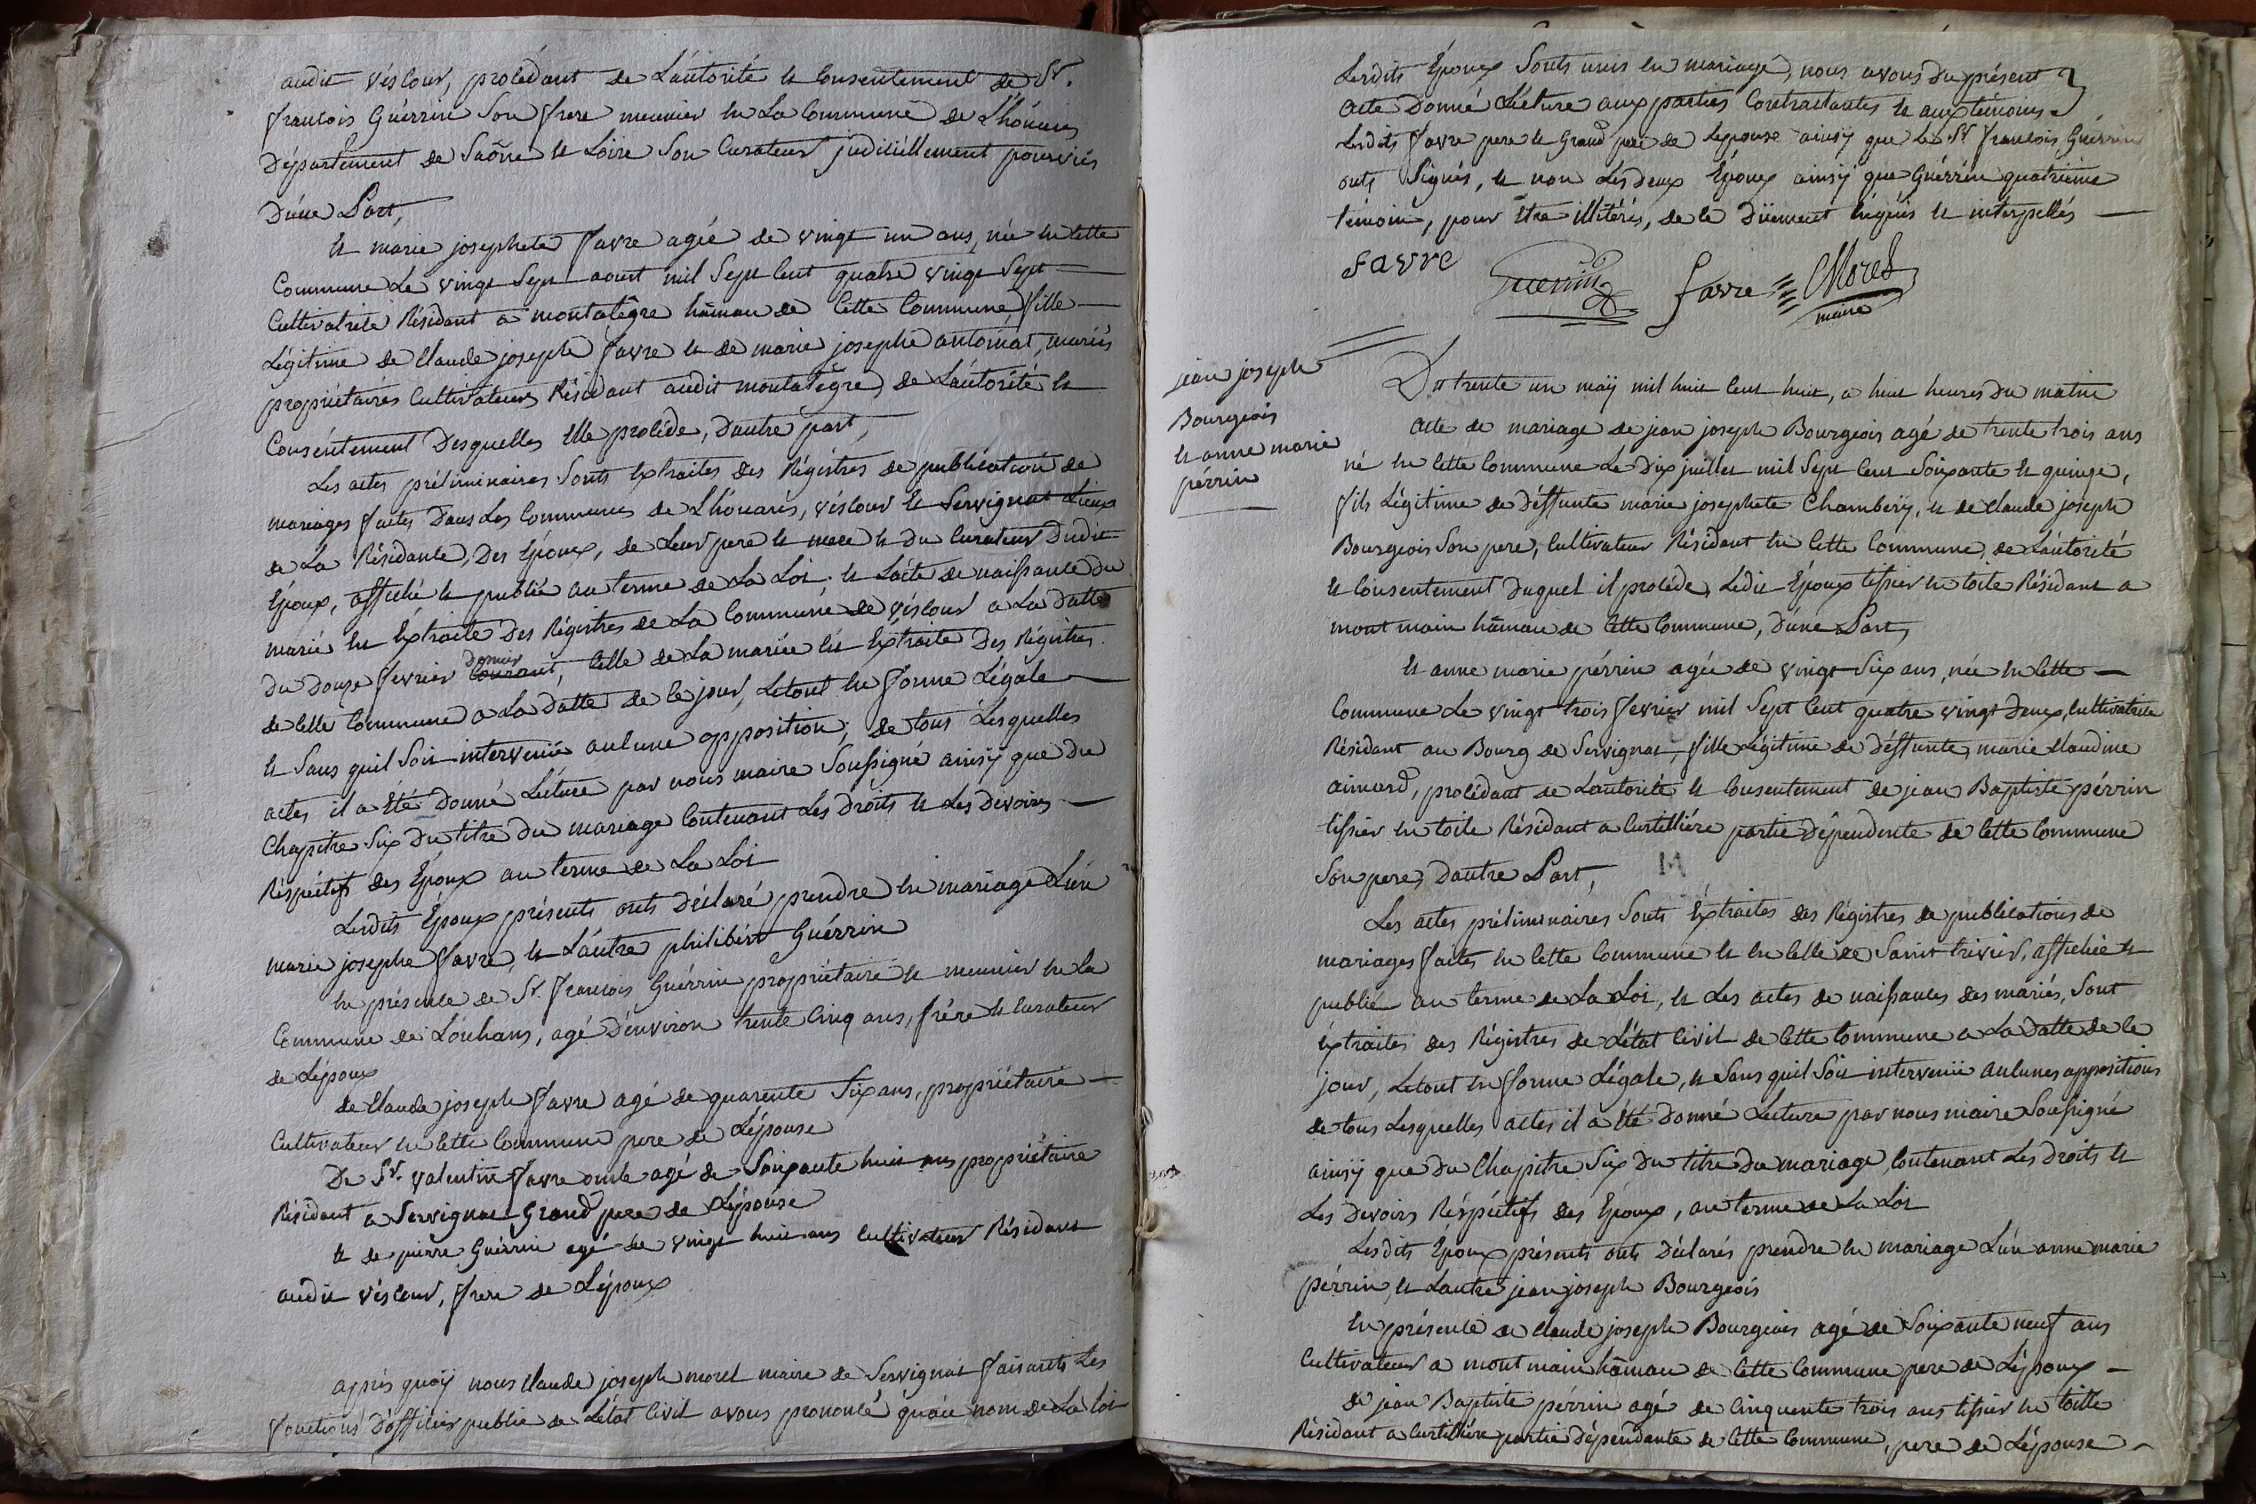 audit véscour, procédant de Láutorité et Consentement de Sr.
francois Guérrin Son frere meunier en La Commune de Lhóuans
Département de Saône et Loire Son Curateur judiciéllement pourvûs
Dúne Part,
et marie josephete favre agée de vingt un ans, née en Cette
Commune Le vingt Sept aoust mil Sept Cent quatre vingt Sept
Cultivatrice Résidant a montalégre hâmau de Cette Commune fille
Légitime de Claude joseph favre et de marie josephe antoinat, mariés
propriétaires Cultivateurs Résidant audit montalégre, de Láutorité et
Consentement Desquelles Elle procéde, Dautre part,
Les actes préliminaires Sonts Extraites des Régistres de publication de
mariages faites Dans Les Communes de Lhóuans, véscour et Servignat Lieux
de La Résidance, Des Epoux, de Leur pere et mere et du Curateur Dudit
Epoux, affiché et publié au terme de La Loi. et Lácte de naissance du
marié est Extraite Des Régistres de La Commune de véscour a La Datte
du Douze fevrier Courant, dernier Celle de La mariée est Extraite Des Régistres
de Cette Commune a La Datte de Ce jour, Letout en forme Légale
et Sans quil Soit intervenüe aulcune opposition, de tous Lesquelles
actes il a Eté Donné Lécture par nous maire Soussigné ainsÿ que du
Chapitre Six Du titre du mariage Contenant Les Droits et Les Devoires
Réspéctifs des Epoux au terme de La Loi
Lesdits Epoux présents onts Déclaré prendre en mariage Lún
marie josephe favre, et Láutre philibért Guérrin
En présence de Sr. francois Guérrin propriétaire et meunier en la
Commune de Lóuhans, agé Dénviron trente Cinq ans, frére et Curateur
de Lépoux
de Claude joseph favre agé de quarente Six ans, propriétaire
Cultivateur en Cette Commune pere de Lépouse
De Sr. valentin favre oncle agé de Soixante huit ans propriétaire
Résidant a Servignat Grand pere de Lépouse
et de pierre Guérrin agé de vingt huit ans Cultivateur Résidant
audit véscour, frere de Lépoux
apprés quoÿ nous Claude joseph morel maire de Servignat faisants Les
fonctions Dófficier public de Létat Civil avons prononcé quáu nom de La Loi
Lesdits Epoux Sonts unis en mariage, nous avons du présent
acte Donné Lécture aux parties Contractantes et aux témoins
Lesdits favre pere et Grand pere de Lepouse ainsÿ que Le Sr francois Guérrin
onts Signés, et non Les deux Epoux ainsÿ que Guérrin quatriéme
témoins, pour être illitérés, de Ce Düement Requis et interpellés
favre
Guerrin
favre
CMorel
maire
jean joseph
Bourgeois
et anne marie
pérrin
Du trente un maÿ mil huit Cent huit, a huit heures du matin
acte de mariage de jean joseph Bourgeois agé de trente trois ans
né en Cette Commune Le Dix juillet mil Sept Cent Soixante et quinze,
fils Légitime de Défftunte marie josephete Chambérÿ, et de Claude joseph
Bourgeois Son pere, Cultivateur Résidant en Cette Commune, de Láutorité
et Consentement Duquel il procéde, Ledit Epoux tissier en toile Résidant a
mont main hâmau de Cette Commune, Dúne Part,
et anne marie pérrin agée de vingt Six ans, née en Cette
Commune Le vingt trois fevrier mil Sept Cent quatre vingt Deux, Cultivatrice
Résidant au Bourg de Servignat, fille Légitime de Défftunte marie Claudine
aimard, procédant de Láutorité et Consentement de jean Baptiste pérrin
tissier en toile Résidant a Curtilliére partie Dépendente de Cette Commune
Son pere, Dautre Part,
Les actes préliminaires Sonts Extraites des Régistres de publications de
mariages faites en Cette Commune et en Celle de Saint trivier, affichée et
publiée au terme de La Loi, et Les actes de naissances des mariés, Sont
Extraites des Régistres de Létat Civil de Cette Commune a La Datte de Ce
jour, Letout en forme Légale, et Sans quil Soit intervenüe aulcunes oppositions
de tous Lesquelles actes il a Eté Donné Lecture par nous maire Soussigné
ainsÿ que du Chapitre Six Du titre du mariage, Contenant Les Droits et
Les Devoirs Réspéctifs des Epoux, au terme de La Loi
Lésdits Epoux présents onts Déclarés prendre en mariage Lún anne marie
pérrin, et Láutre jean joseph Bourgeois
En présence de Claude joseph Bourgeois agé de Soixante neuf ans
Cultivateur a mont main hâmau de Cette Commune pere de Lépoux
de jean Baptiste pérrin agé de Cinquente trois ans tissier en toille
Résidant a Curtilliére partie Dépendante de Cette Commune, pere de Lépouse